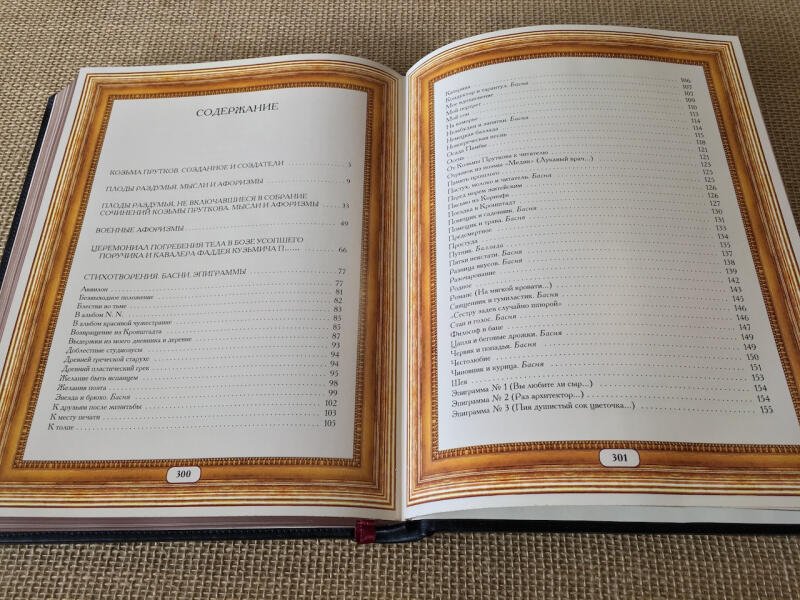 СОДЕРЖАНИЕ
КОЗЬМА ПРУТКОВ. СОЗДАННОЕ И СОЗДАТЕЛИ 5
ПЛОДЫ РАЗДУМЬЯ. МЫСЛИ И АФОРИЗМЫ 9
ПЛОДЫ РАЗДУМЬЯ, НЕ ВКЛЮЧАВШИЕСЯ В СОБРАНИЕ
СОЧИНЕНИЙ КОЗЬМЫ ПРУТКОВА. МЫСЛИ И АФОРИЗМЫ 33
ВОЕННЫЕ АФОРИЗМЫ 49
ЦЕРЕМОНИАЛ ПОГРЕБЕНИЯ ТЕЛА В БОЗЕ УСОПШЕГО
ПОРУЧИКА И КАВАЛЕРА ФАДДЕЯ КУЗЬМИЧА П...... 66
СТИХОТВОРЕНИЯ. БАСНИ. ЭПИГРАММЫ 77
Аквилон 77
Безвыходное положение 81
Блестки во тьме 82
В альбом N. N. 83
В альбом красивой чужестранке 85
Возвращение из Кронштадта 85
Выдержки из моего дневника в деревне 87
Доблестные студиозусы 93
Древней греческой старухе 94
Древний пластический грек 94
Желание быть испанцем 95
Желания поэта 98
Звезда и брюхо. Басня 99
К друзьям после женитьбы 102
К месту печати 103
К толпе 105
300
Катерина 106
Кондуктор и тарантул. Басня 107
Мое вдохновение 107
Мой портрет 109
Мой сон 110
На взморье 113
Незабудки и запятки. Басня 114
Немецкая баллада 114
Новогреческая песнь 115
Осада Памбы 118
Осень 121
От Козьмы Пруткова к читателю 121
Отрывок из поэмы «Медик» (Лукавый врач...) 122
Память прошлого 123
Пастух, молоко и читатель. Басня 125
Перед морем житейским 125
Письмо из Коринфа 126
Поездка в Кронштадт 126
Помещик и садовник. Басня 127
Помещик и трава. Басня 130
Предсмертное 131
Простуда 133
Путник. Баллада 134
Пятки некстати. Басня 135
Разница вкусов. Басня 137
Разочарование 138
Родное 139
Романс (На мягкой кровати...) 142
Священник и гумиластик. Басня 143
«Сестру задев случайно шпорой» 145
Стан и голос. Басня 146
Философ в бане 146
Цапля и беговые дрожки. Басня 147
Червяк и попадья. Басня 149
Честолюбие 149
Чиновник и курица. Басня 150
Шея 151
Эпиграмма № 1 (Вы любите ли сыр...) 153
Эпиграмма № 2 (Раз архитектор...) 154
Эпиграмма № 3 (Пия душистый сок цветочка...) 155
301